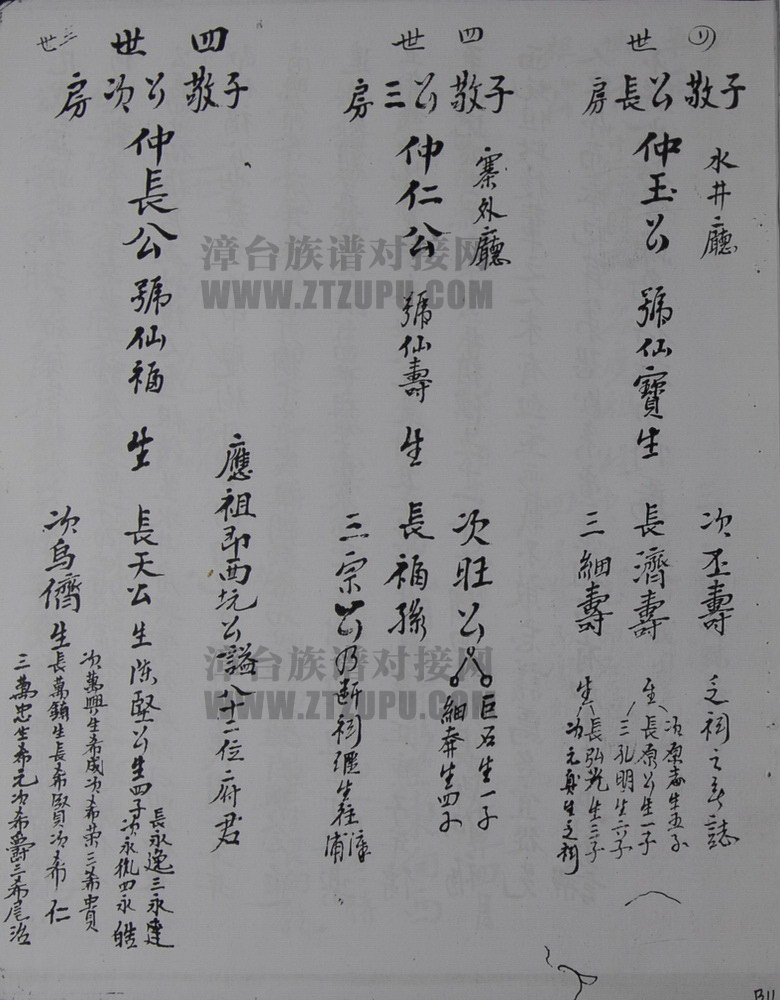 四世
子敬公長房
水井廳
仲玉公 號仙寶生
次丕壽 乏祠之奇誌
長濟壽 生
次原志生五子
長原公生一子
三孔明生六子
三細壽 生
長弘 生三子
次元 生乏祠
四世
子敬公三房
寨外廳
仲仁公 號仙壽 生
次旺公
巨石生一子
細奔生四子
長福孫
三宗公乃斷祠遷生往漳浦
四世
三世
子敬公次房
仲長公 號仙福 生
應祖即西坑公謚八十二位府君
長天公生陳堅公生四子
長永逸三永達
次永 四永皓
次烏儕生
次萬興生希成次希荣三希貴
長萬鎮生長希賢次希仁
三萬忠生希元次希爵三希尾治
漳台族谱对接网
WWW.ZTZUPU.COM
漳台族谱对接网
WWW.ZTZUPU.COM